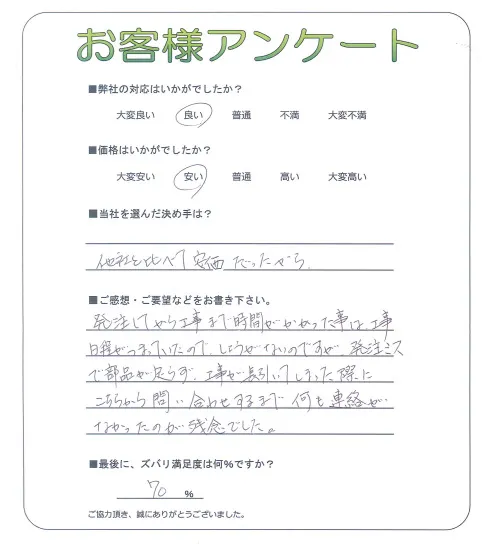 お客様アンケート
■弊社の対応はいかがでしたか？
大変良い 良い 普通 不満 大変不満
■価格はいかがでしたか？
大変安い 安い 普通 高い 大変高い
■当社を選んだ決め手は？
他社と比べて安価だったから.
■ご感想・ご要望などをお書き下さい。
発注してから工事まで時間がかかった事は、工事
日程がつまっていたので、しょうがないのですが、発注ミス
で部品が足らず、工事が長引いてしまった際に
こちらから問い合わせするまで何も連絡が
なかったのが残念でした。
■最後に、ズバリ満足度は何％ですか？
70 %
ご協力頂き、誠にありがとうございました。